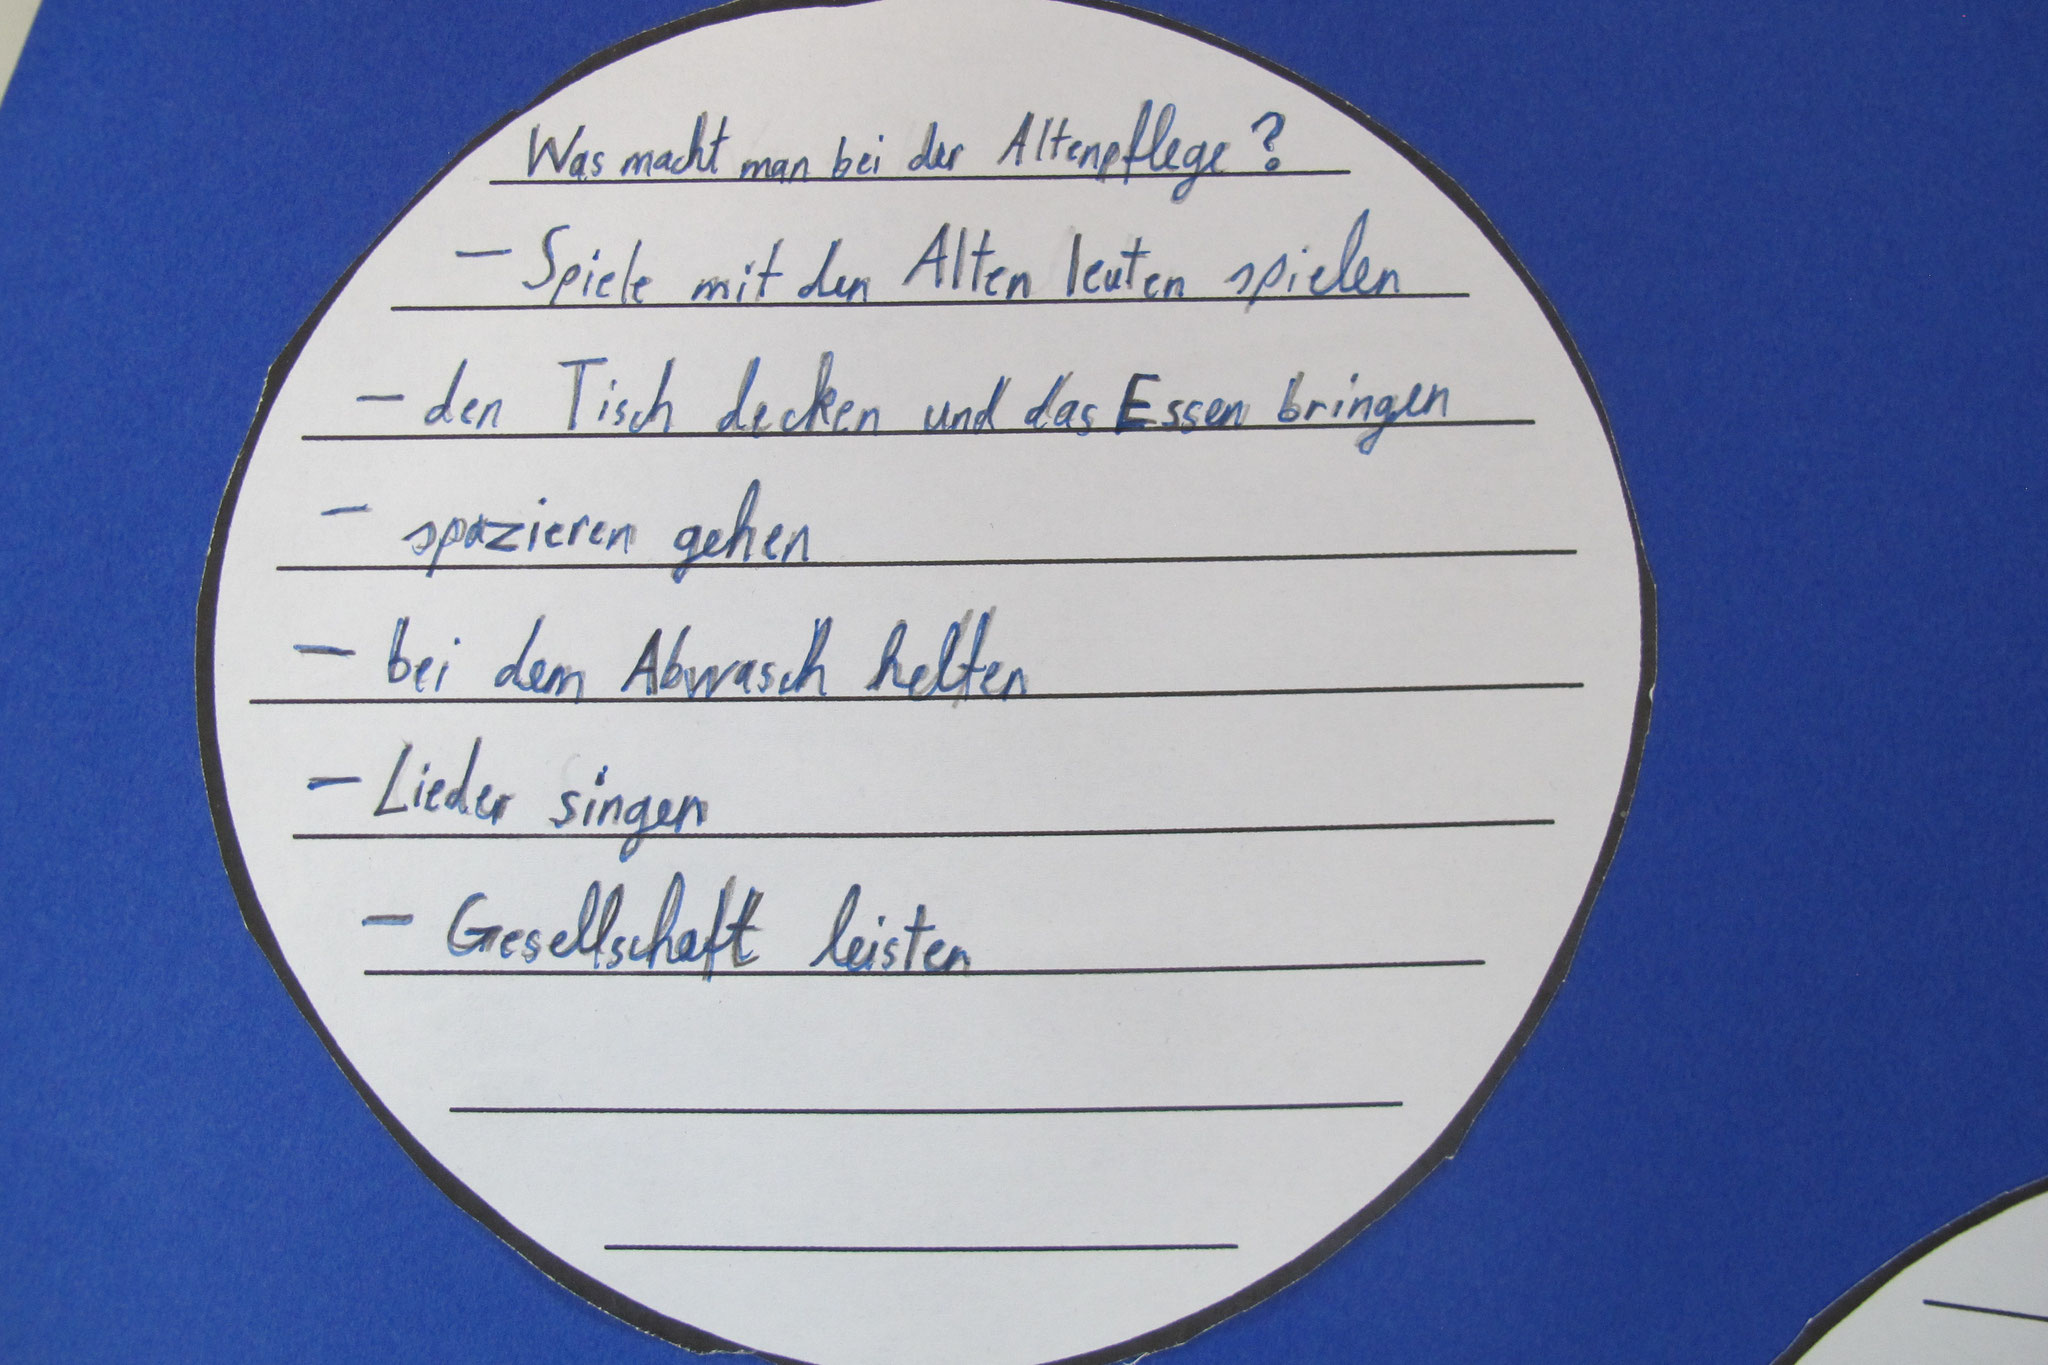 Was macht man bei der Altenpflege?
- Spiele mit den Alten leuten spielen
- den Tisch decken und das Essen bringen
- spazieren gehen
- bei dem Abwasch helfen
- Lieder singen
- Gesellschaft leisten